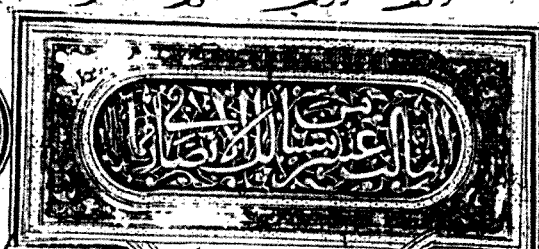 الثالث عشر من مسالك الابصار في